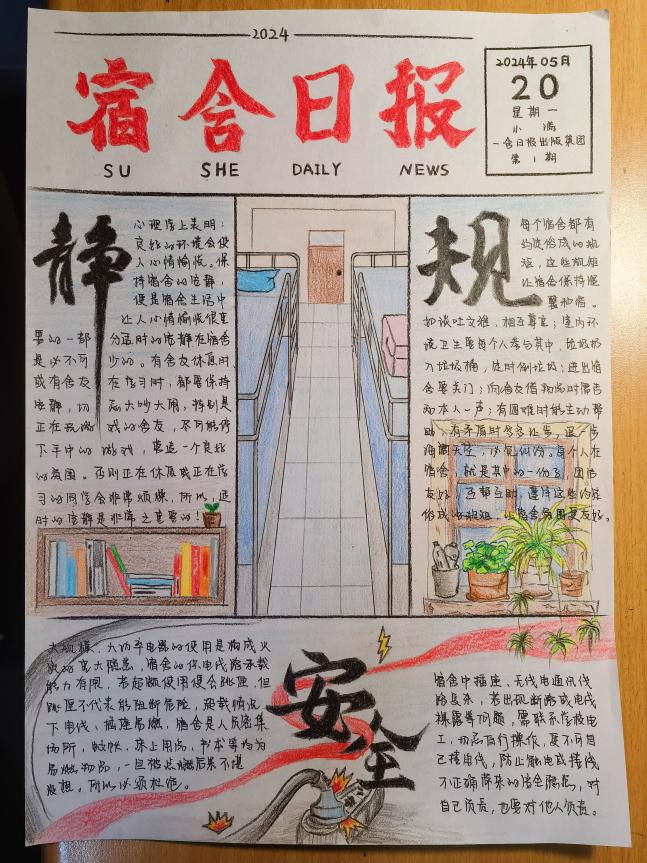 2024
宿舍日报
SU SHE DAILY NEWS
2024年05日
20
星期一
小满
一舍日报出版集团
第1期
静
心理学上表明:
良好的环境会使
人心情愉悦。保
持宿舍的安静,
便是宿舍生活中
让人心情愉悦很重
要的一部分适时的安静在宿舍
是必不可少的。有舍友休息时,
或有舍友在学习时,都要保持
安静,切忌大吵大闹,特别是
正在玩游戏的舍友,尽可能停
下手中的游戏,营造一个良好
的氛围。否则正在休息或正在学
习的同学会非常烦躁,所以,适
时的安静是非常之重要的!
规
每个宿舍都有
约定俗成的规
矩,这些规矩
让宿舍保持温
馨和谐。
如谈吐文雅,相互尊重;室内环
境卫生要每个人参与其中,垃圾扔
入垃圾桶,定时倒垃圾;进出宿
舍要关门;向舍友借物品时需告
知本人一声;有困难时能主动帮
助,有矛盾时多多让步,退一步
海阔天空,少见纠纷。每个人在
宿舍,就是其中的一份子,团结
友好,互帮互助,遵守这些约定
俗成的规矩,让宿舍氛围更友好。
安全
大规模、大功率电器的使用是构成火
灾的重大隐患,宿舍的供电线路承载
能力有限,若超额使用便会跳匣,但
跳匣不代表能阻断危险,超载情况
下电线、插座易燃,宿舍是人员密集
场所,蚊帐、床上用品、书本等均为
易燃物品,一旦被点燃后果不堪
设想。所以必须杜绝。
宿舍中插座、无线电通讯线
路复杂,若出现断路或电线
裸露等问题,需联系学校电
工,切忌自行操作,更不可自
己接电线,防止触电或接线
不正确带来的安全隐患,对
自己负责,也要对他人负责。